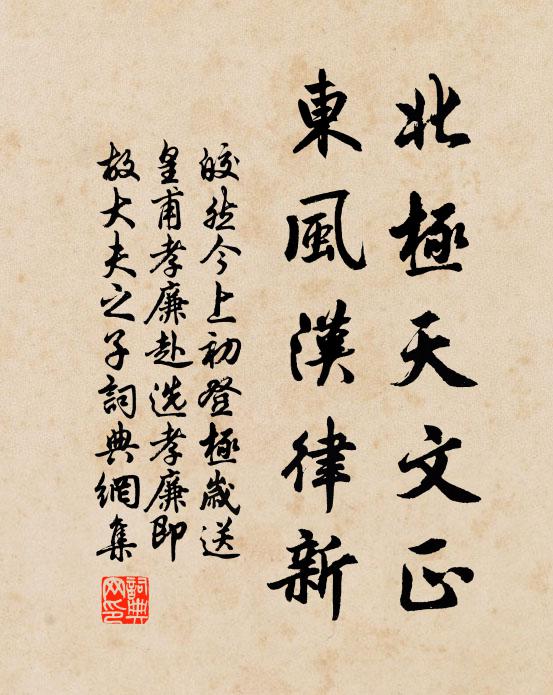 北極天文正
東風漢律新
皎然今上初登極歲送
皇甫孝廉赴选孝廉即
故大夫之子詞典網集
詞典网印